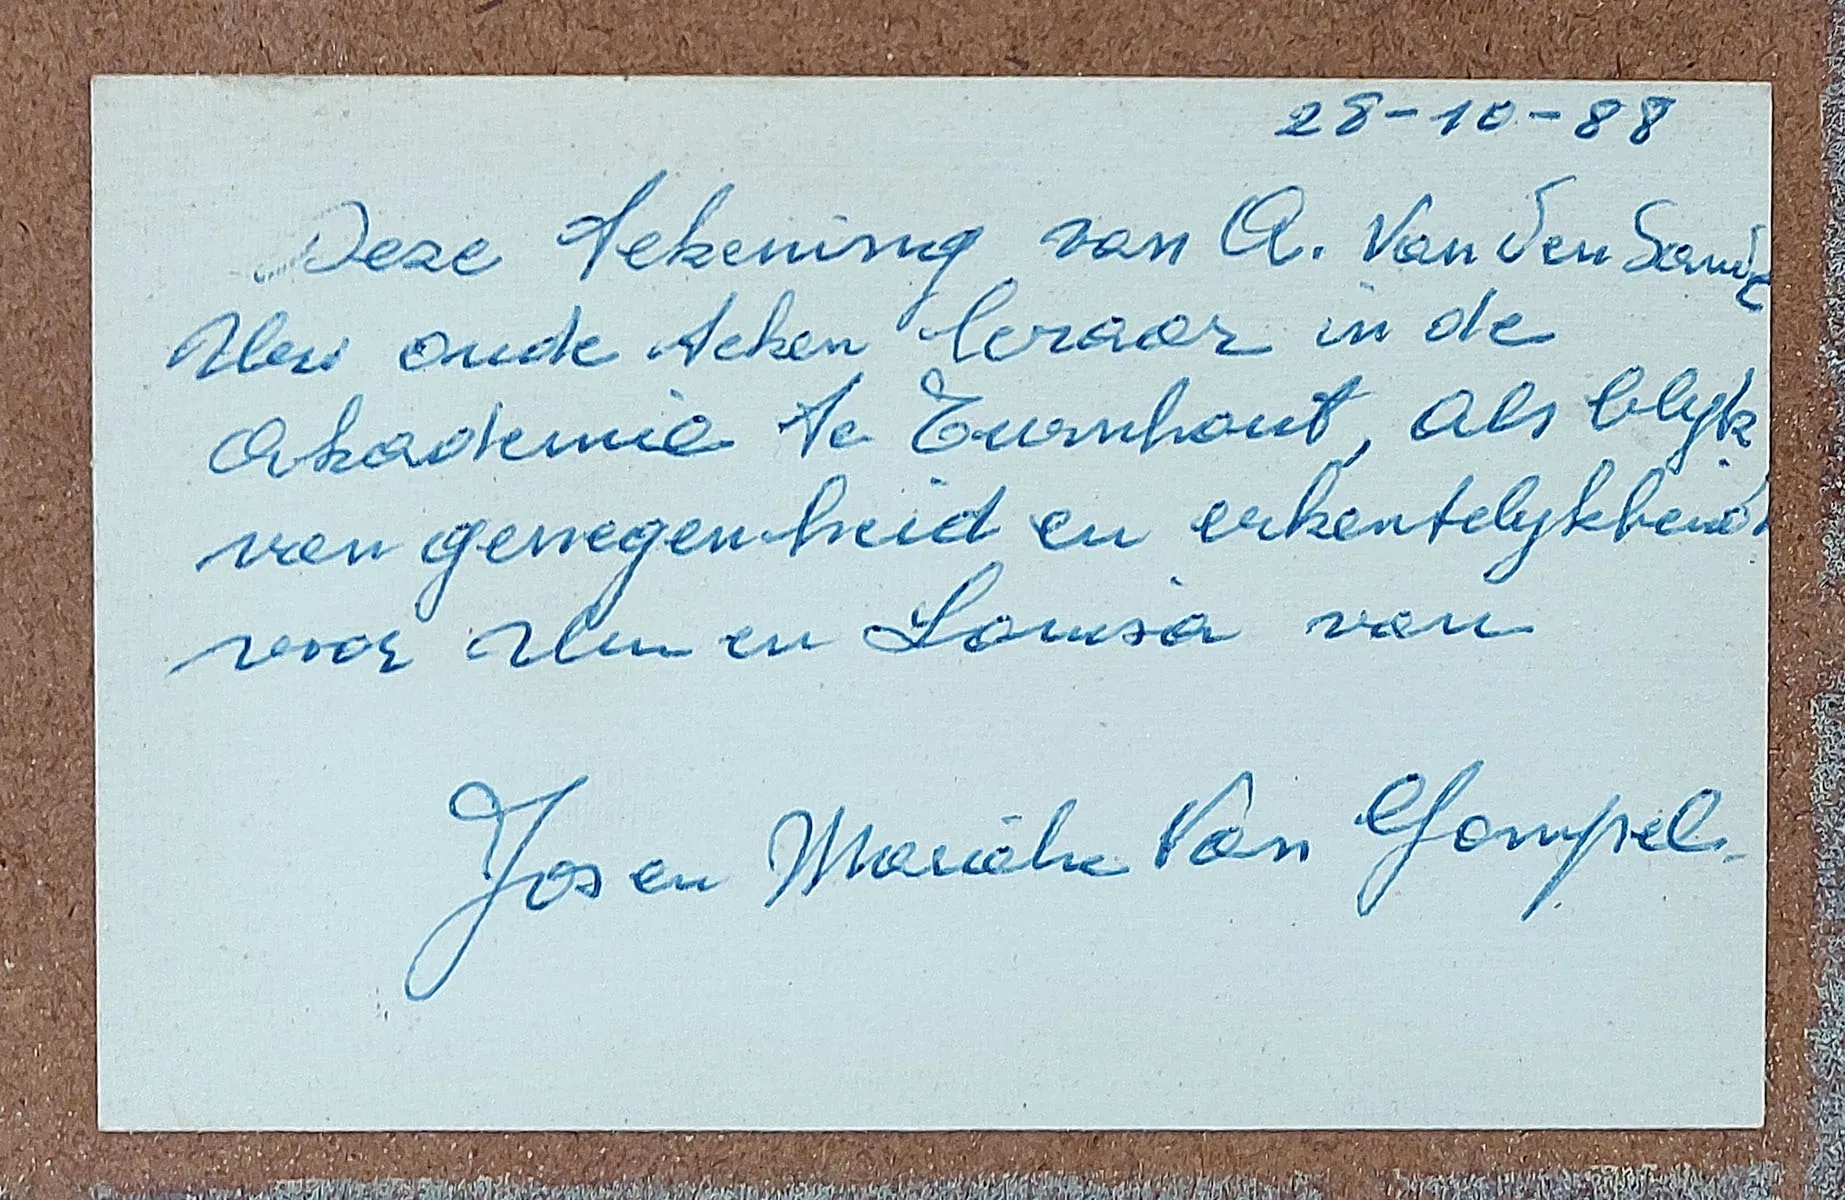 28-10-88
Deze tekening van A. Van den
Uw oude teken leraar in de
Akademie te Turnhout, als blijk
van genegenheid en erkentelijkheid
voor U en Louisa van
Jos en Mariëtte Van Gompel.